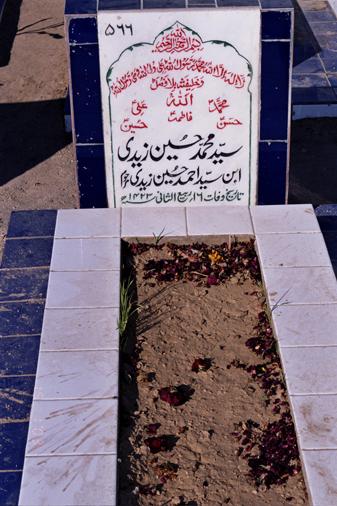 ۵۶۶
بسم اللہ الرحمن الرحیم
لا الہ الا اللہ محمد رسول اللہ علی ولی اللہ وصی رسول اللہ
وخلیفتہ بلا فصل
اللہ
محمدؐ علیؑ
فاطمہؑ
حسنؑ حسینؑ
سید محمد حسین زیدی
ابن سید احمد حسین زیدی
تاریخ وفات ۱۶ ربیع الثانی ۱۴۲۳ھ